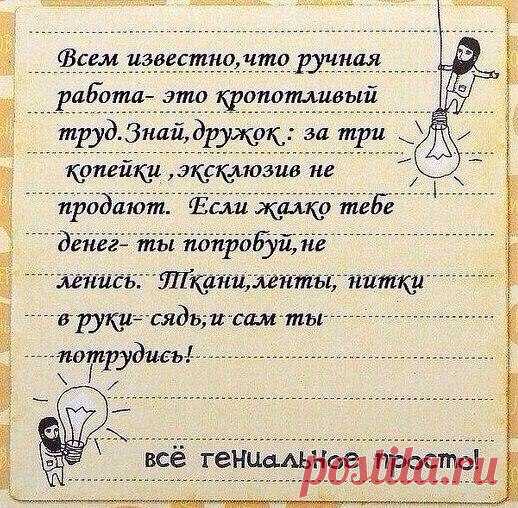 Всем известно,что ручная
работа- это кропотливый
труд.Знай,дружок : за три
копейки ,эксклюзив не
продают. Если жалко тебе
денег- ты попробуй,не
ленись. Ткани,ленты, нитки
в руки- сядь,и сам ты
потрудись!
всё гениальное просто!
postila.ru